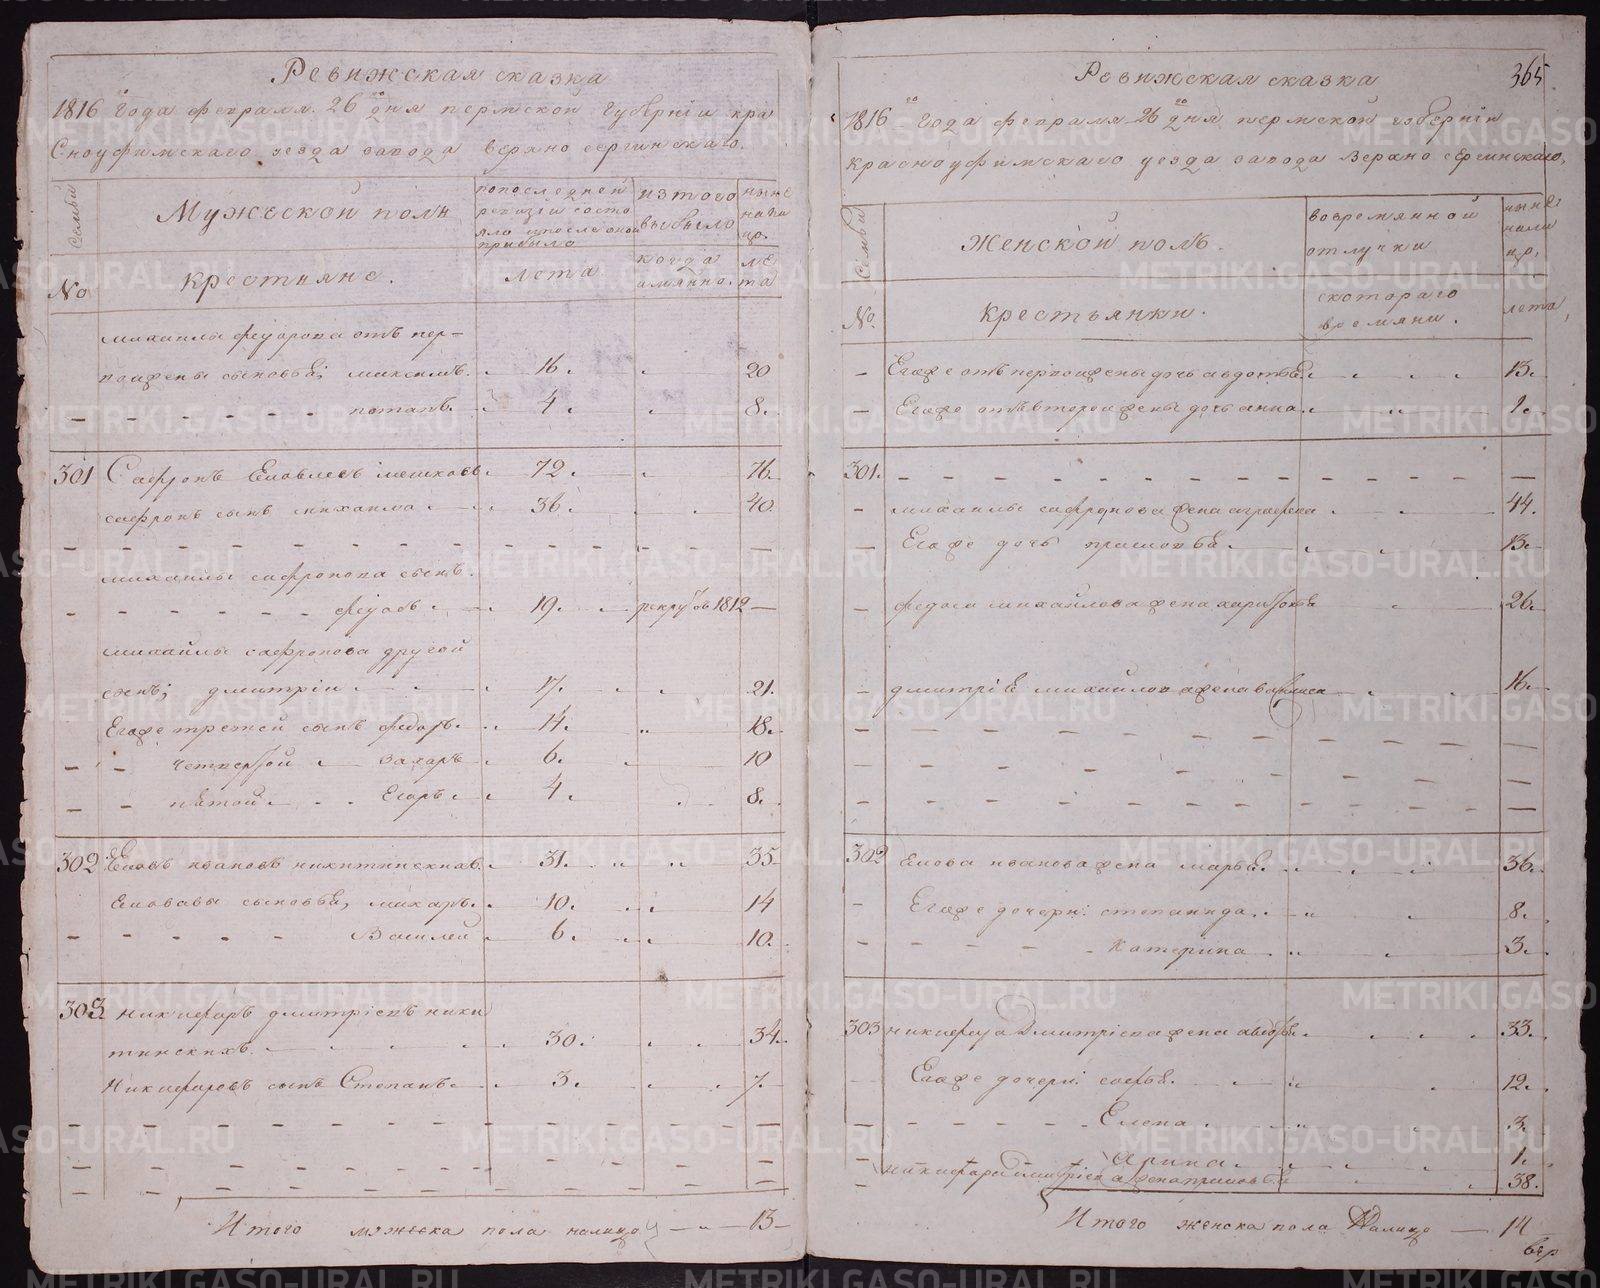 Ревижская сказка
1816 го года февраля 26 го дня пермской губернiи кра
сноуфимскаго уезда завода верхно сергинскаго.
Семьи
Мужеской полъ
попоследней ревизiи состо яло ипосле оной прибыло
изтого выбыло
ныне нали цо.
No
крестьяне.
лета
когда имянно.
ле та
михаилы федорова отъ пер-
войжены сыновья; максимъ. 16. 20
потапъ. 4. 8.
301 Сафронъ Ековлевъ мешковъ. 72. 76.
сафронъ сынъ михаила 36. 40.
михаилы сафронова сынъ.
федосъ 19. рекрутъ 1812
михайлы сафронова другой
сынъ; дмитрiи 17. 21.
Егоже третей сынъ федоръ. 14. 18.
четвертой захаръ 6. 10
пятой Егоръ 4. 8.
302 Ековъ ивановъ никитинскихъ. 31. 35.
Ековавы сыновья, макаръ. 10. 14
Василей 6. 10.
303. никифоръ дмитрiевъ ники
тинскихъ. 30. 34.
Никифоровъ сынъ Степанъ 3. 7.
Итого мужеска пола налицо 13
365
Ревижская сказка
1816 го года февраля 26 го дня пермской губернiи
красноуфимскаго уезда завода верхно сергинскаго,
Семьи
Женской полъ.
вовремянной отлучки
ныне нали цо,
No.
Крестьянки.
скотораго времяни.
лета,
Егоже отъ первойжены дочь авдотья 13.
Егоже отъ второйжены дочь анна 1.
301.
михаилы сафронова жена аграфена 44.
Егоже дочь прасковья 13.
федоса михайлова жена харитонья 26.
дмитрiя михайлова жена василиса 16.
302 Екова иванова жена марья. 36.
Егоже дочери: степанида. 8.
катерина 3.
303 никифора дмитрiева жена авдотья 33.
Егоже дочери: софья. 12.
Елена 3.
Арина 1.
никифора дмитрiева жена прасковья 38.
Итого женска пола Налицо 14
вер